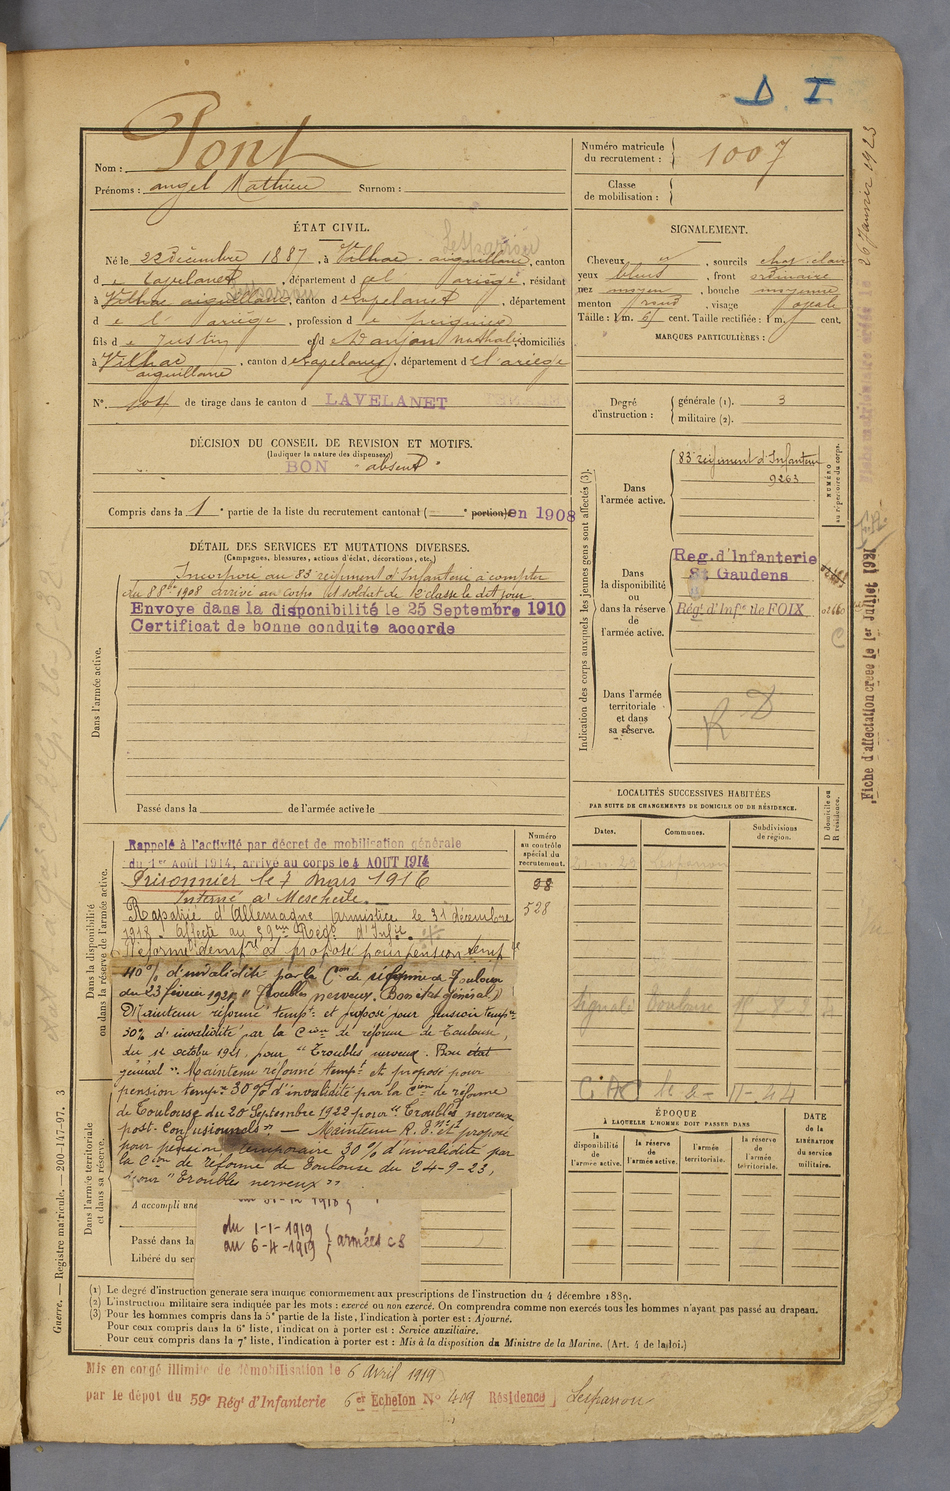 D. I.
Nom : Pont
Prénoms : angel Mathieu Surnom :
Numéro matricule du recrutement : 1007
Classe de mobilisation :
ÉTAT CIVIL.
Né le 22 décembre 1887, à Vilhac-aiguillane, canton
de Lavelanet, département de l'ariège, résidant
à Vilhac aiguillane, canton de Lavelanet, département
de l'ariège, profession de peignier
fils de Justin et d nathalie, domiciliés
à Vilhac aiguillane, canton de Lavelanet, département de l'ariège
N° 104 de tirage dans le canton d LAVELANET
SIGNALEMENT.
Cheveux , sourcils chat. clair
yeux bleus, front ordinaire
nez moyen, bouche moyenne
menton rond, visage ovale
Taille : 1 m. 61 cent. Taille rectifiée : 1 m. cent.
MARQUES PARTICULIÈRES :
Degré d'instruction : générale (1). 3
militaire (2).
DÉCISION DU CONSEIL DE REVISION ET MOTIFS.
(Indiquer la nature des dispenses)
BON "absent"
Compris dans la 1e partie de la liste du recrutement cantonal ( portion) en 1908
DÉTAIL DES SERVICES ET MUTATIONS DIVERSES.
(Campagnes, blessures, actions d'éclat, décorations, etc.)
Dans l'armée active.
Incorporé au 83e régiment d'Infanterie à compter
du 8 8bre 1908 arrivé au corps et soldat de 2e classe le dit jour
Envoye dans la disponibilité le 25 Septembre 1910
Certificat de bonne conduite accorde
Passé dans la de l'armée active le
Indication des corps auxquels les jeunes gens sont affectés (3).
Dans l'armée active.
83e régiment d'Infanterie
9263
NUMÉRO au répertoire du corps.
Dans la disponibilité ou dans la réserve de l'armée active.
Reg. d'Infanterie
St Gaudens
Rég. d'Infie de FOIX
Dans l'armée territoriale et dans sa réserve.
R D
Fiche d'affectation créée le 1er Juillet 1921
26 Janvier 1923
LOCALITÉS SUCCESSIVES HABITÉES
PAR SUITE DE CHANGEMENTS DE DOMICILE OU DE RÉSIDENCE.
Dates. Communes. Subdivisions de région. D domicile ou R résidence.
Signalé Toulouse
Dans la disponibilité ou dans la réserve de l'armée active.
Numéro au contrôle spécial du recrutement.
98
528
Rappelé à l'activité par décret de mobilisation générale
du 1er Août 1914, arrivé au corps le 4 AOUT 1914
Prisonnier le 7 mars 1916
Interné à Meschede.
Rapatrié d'Allemagne (armistice) le 31 décembre
1918. Affecté au 59ème Régt d'Infie.
Réformé tempre et proposé pour pension temp
40% d'invalidité par la Con de réforme de Toulouse
du 23 février 1921 "Troubles nerveux. Bon état général"
Maintenu réformé tempre et proposé pour pension tempre
30% d'invalidité par la Cion de réforme de Toulouse
du 12 octobre 1921 pour "Troubles nerveux. Bon état
général". Maintenu réformé tempt et proposé pour
pension tempre 30% d'invalidité par la Cion de réforme
de Toulouse du 20 Septembre 1922 pour "Troubles nerveux
post-confusionnels". — Maintenu R. T. et proposé
pour pension temporaire 30% d'invalidité par
la Cion de réforme de Toulouse du 24-9-23,
pour "Troubles nerveux"
Dans l'armée territoriale et dans sa réserve.
A accompli une
Passé dans la
Libéré du ser
du 1-1-1919
au 6-4-1919 } armées CS
ÉPOQUE
À LAQUELLE L'HOMME DOIT PASSER DANS
la disponibilité de l'armée active.
la réserve de l'armée active.
l'armée territoriale.
la réserve de l'armée territoriale.
DATE de la LIBÉRATION du service militaire.
(1) Le degré d'instruction générale sera indiqué conformément aux prescriptions de l'instruction du 4 décembre 1889.
(2) L'instruction militaire sera indiquée par les mots : exercé ou non exercé. On comprendra comme non exercés tous les hommes n'ayant pas passé au drapeau.
(3) Pour les hommes compris dans la 5e partie de la liste, l'indication à porter est : Ajourné.
Pour ceux compris dans la 6e liste, l'indication à porter est : Service auxiliaire.
Pour ceux compris dans la 7e liste, l'indication à porter est : Mis à la disposition du Ministre de la Marine. (Art. 4 de la loi.)
Guerre. — Registre matricule. — 200-147-97. 3
Mis en congé illimité de démobilisation le 6 Avril 1919
par le dépôt du 59e Rég. d'Infanterie 6er Echelon N° 419 Résidence Lesparrou